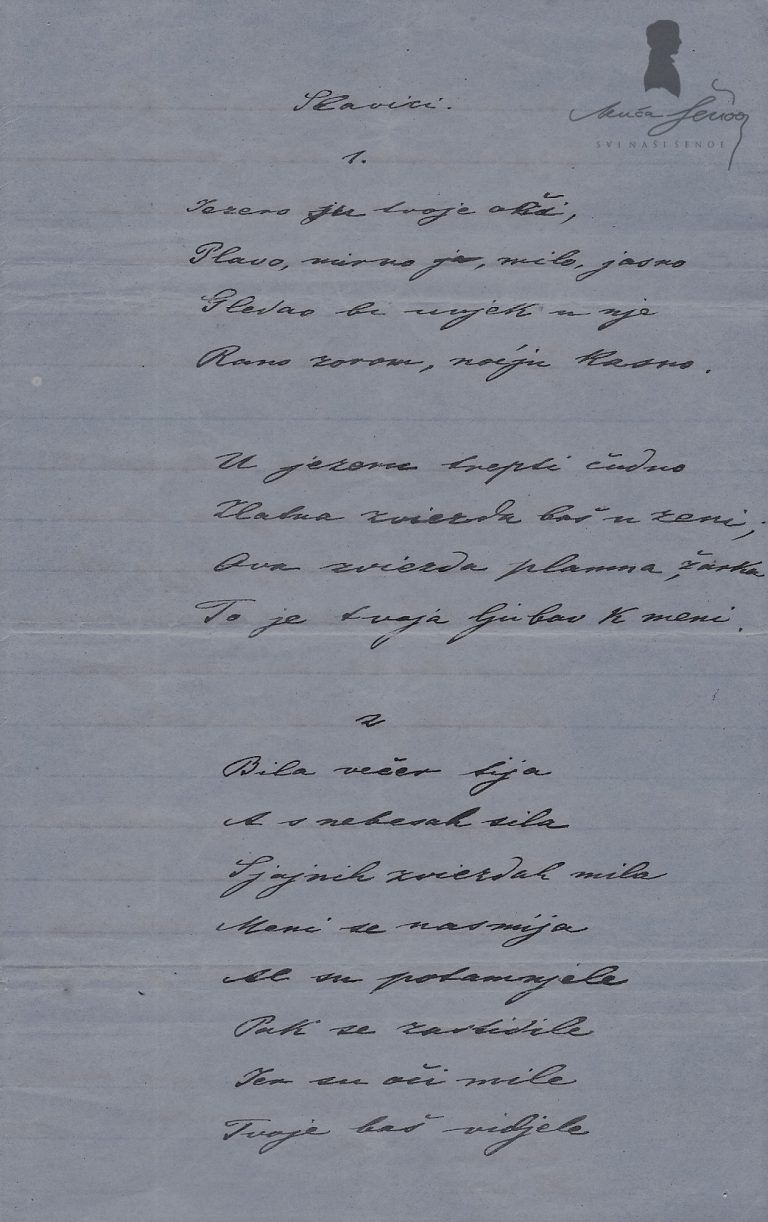 Slavici.
Anča Šenoa
SVI NAŠI ŠENOE
1.
Jezero je tvoje oko,
Plavo, mirno je, milo, jasno
Gledao bi uvjek u nje
Rano zorom, noćju kasno.
U jezeru trepti čudno
Zlatna zviezda baš u zeni;
Ova zviezda plamna, žarka
To je tvoja ljubav k meni.
2
Bila večer sija
A s nebesah sila
Sjajnih zviezdah mila
Meni se nasmija
Al su potamnjele
Pak se zastidile
Jer su oči mile
Tvoje baš vidjele